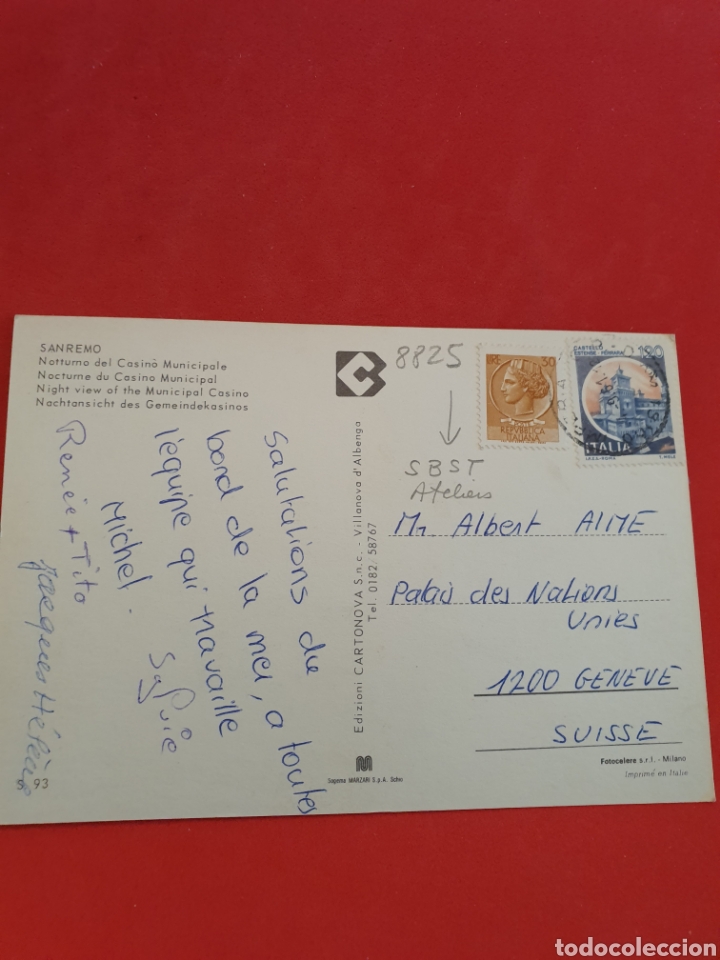 SANREMO
Notturno del Casinò Municipale
Nocturne du Casino Municipal
Night view of the Municipal Casino
Nachtansicht des Gemeindekasinos
Salutations du
bord de la mer, a toutes
l'equipe qui travaille
Michel.
Renée + Tito
Jacques Hélène
S. 93
Edizioni CARTONOVA S.n.c. - Villanova d'Albenga
Tel. 0182 58767
Sagema MARZARI S.p.A. Schio
8825
SBST
Ateliers
50
REPVBBLICA
ITALIANA
CASTELLO
ESTENSE - FERRARA
ITALIA
Mr Albert AIME
Palais des Nations
Unies
1200 GENEVE
SUISSE
Fotocelere s.r.l. - Milano
Imprimé en Italie
todocoleccion